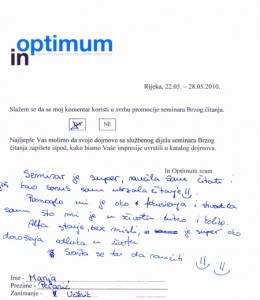 optimum
in
Rijeka, 22.05. – 28.05.2010.
Slažem se da se moj komentar koristi u svrhu promocije seminara Brzog čitanja.
DA NE
Najljepše Vas molimo da svoje dojmove sa službenog dijela seminara Brzog
čitanja zapišete ispod, kako bismo Vaše impresije uvrstili u katalog dojmova.
In Optimum team
Seminar je super, naučila sam čitati i
još kao bonus sam ubrzala čitanje
Pomoglo mi je oko fokusiranja i shvatila
sam što mi je u životu bitno i koliko.
Alfa stanje, bez misli, je super oko
donošenja odluka u životu
se to da naučiti
Ime – Marija
Prezime –
Zanimanje –